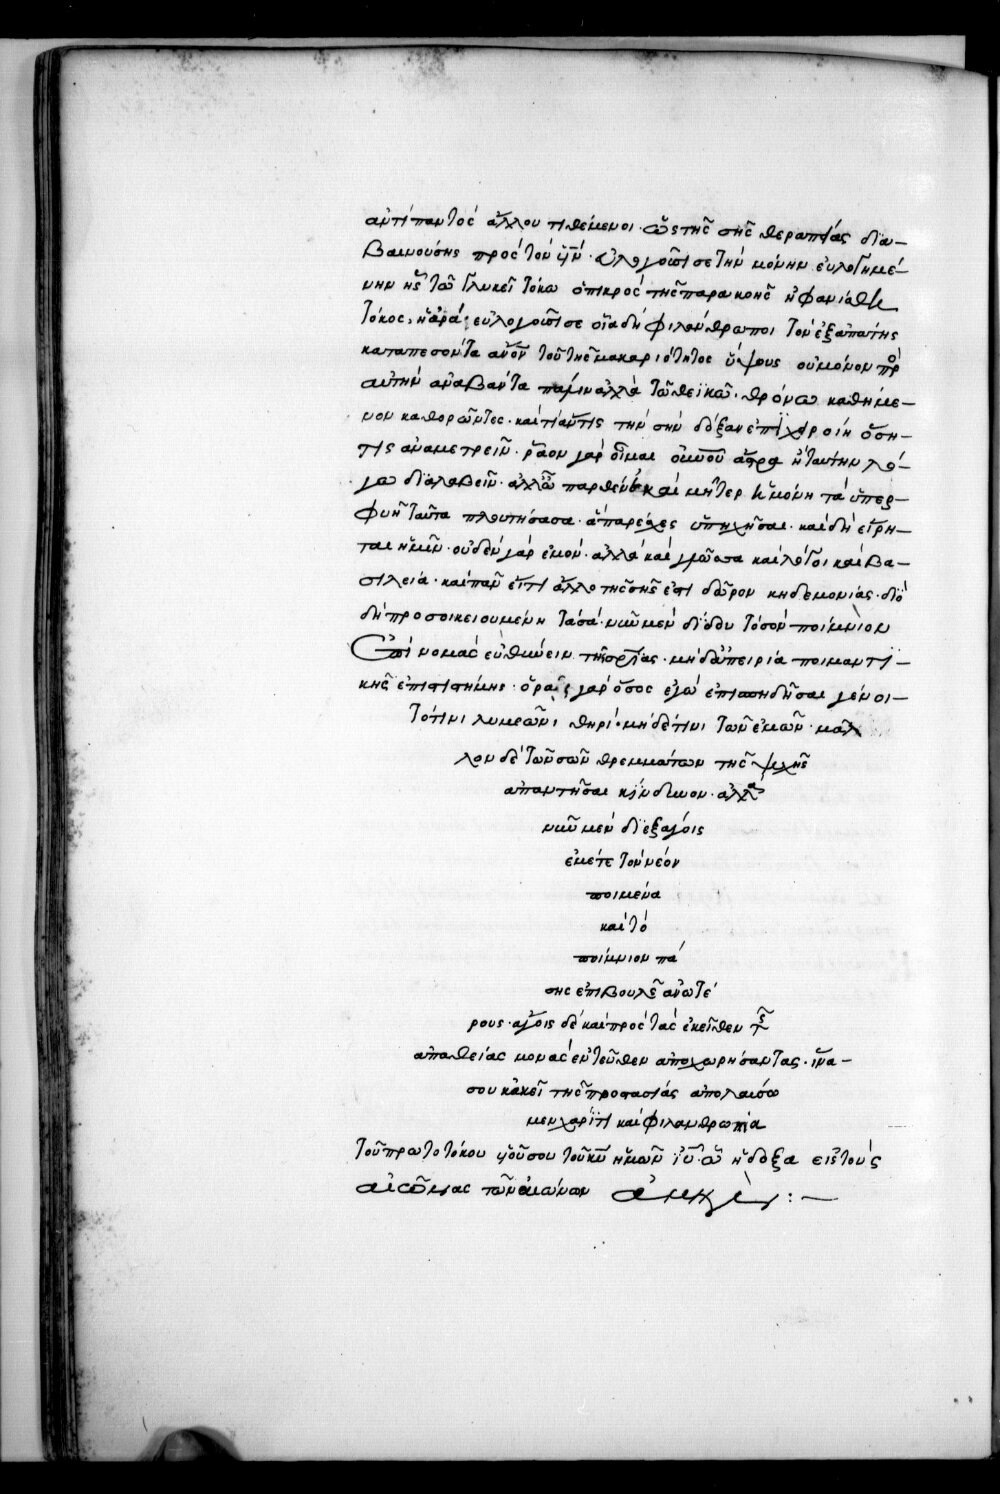 ἀντὶ παντὸς ἄλλου τιθέμενοι· ὡς τῆς σῆς θεραπείας δια-
βαινούσης πρὸς τὸν υἱν· εὐλογοῦσί σε τὴν μόνην εὐλογημέ-
νην ἧς τῶ γλυκεῖ τόκω ὁ πικρὸς τῆς παρακοῆς ἠφανίσθη
τόκος, ἡ ἀρά· εὐλογοῦσί σε οἷα δὴ φιλάνθρωποι τὸν ἐξ ἀπάτης
καταπεσόντα ανον τοῦ τῆς μακαριότητος ὕψους οὐ μόνον πρ
αὐτὴν ἀναβάντα πάλιν ἀλλὰ τῶ θεϊκῶ θρόνω καθήμε-
νον καθορῶντες· καὶ τί ἄν τις τὴν σὴν δόξαν ἐπιχειροίη ὅση-
τις ἀναμετρεῖν· ῥᾶον γὰρ οἶμαι οὐνοῦ ἄστρα ἢ ταύτην λό-
γω διαλαβεῖν· ἀλλ' ὦ παρθένε καὶ μῆτερ ἡ μόνη τὰ ὑπερ-
φυῆ ταῦτα πλουτήσασα· ἃ παρέσχες ὑπηχῆσαι· καὶ δὴ εἴρη-
ται ἡμῖν· οὐδὲν γὰρ ἐμόν· ἀλλὰ καὶ γλῶσσα καὶ λόγοι καὶ βα-
σιλεία· καὶ πᾶν εἴτι ἄλλο τῆς σῆς ἐστι δῶρον κηδεμονίας· διὸ
δὴ προσοικειουμένη τὰ σὰ· νῦν μὲν δίδου τὸ σὸν ποίμνιον
ἐπὶ νομὰς εὐθύνειν τῆς σρίας· μηδ' ἀπειρία ποιμαντι-
κῆς ἐπιστήμης· ὁρᾷς γὰρ ὅσος ἐγὼ ἐπιστῆσαι γένοι-
το τινι λυμεῶνι θηρί· μηδέ τινι τῶν ἐμῶν· μᾶλ
λον δὲ τῶν σῶν θρεμμάτων τῆς ψυχῆς
ἀπαντῆσαι κίνδυνον· ἀλλὰ
νῦν μὲν διεξάγοις
ἐμέ τε τὸν νέον
ποιμένα
καὶ τὸ
ποίμνιον πά
σης ἐπιβουλῆς ἀνωτέ
ρους· ἄγοις δὲ καὶ πρὸς τὰς ἐκεῖθεν τ
ἀπαθείας μονὰς ἐντεῦθεν ἀποχωρήσαντας· ἵνα-
σου κἀκεῖ τῆς προστασίας ἀπολαύσω
μεν χάριτι καὶ φιλανθρωπία
τοῦ πρωτοτόκου υοῦ σου τοῦ κυ ἡμῶν ιυ· ὧ ἡ δόξα εἰς τοὺς
αἰῶνας τῶν αἰώνων ἀμήν :—